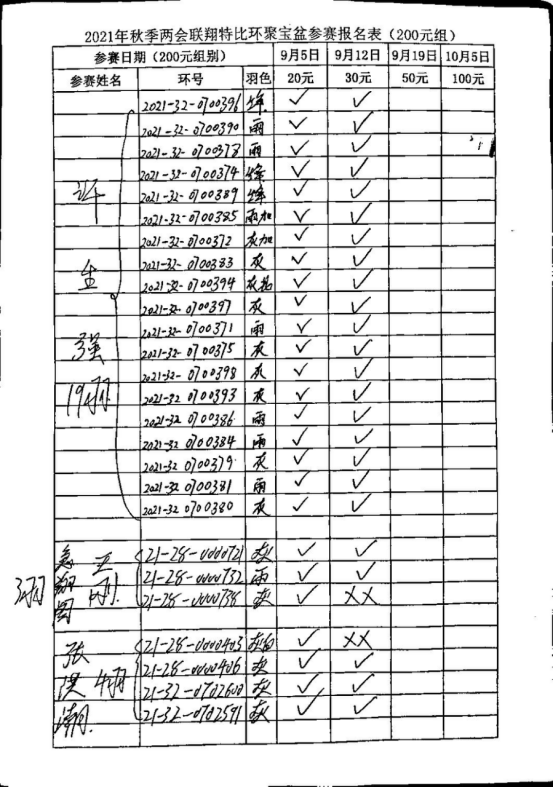 2021年秋季两会联翔特比环聚宝盆参赛报名表（200元组）
参赛日期（200元组别） 9月5日 9月12日 9月19日 10月5日
参赛姓名 环号 羽色 20元 30元 50元 100元
2021-32-0700396 绛 ✓ ✓
2021-32-0700390 雨 ✓ ✓
2021-32-0700378 雨 ✓ ✓
2021-32-0700374 绛 ✓ ✓
许 2021-32-0700389 绛 ✓ ✓
2021-32-0700385 雨加 ✓ ✓
2021-32-0700372 灰加 ✓ ✓
2021-32-0700383 灰 ✓ ✓
2021-32-0700394 灰花 ✓ ✓
2021-32-0700397 灰 ✓ ✓
2021-32-0700371 雨 ✓ ✓
强 2021-32-0700375 灰 ✓ ✓
2021-32-0700398 灰 ✓ ✓
19羽 2021-32-0700393 灰 ✓ ✓
2021-32-0700386 雨 ✓ ✓
2021-32-0700384 雨 ✓ ✓
2021-32-0700379 灰 ✓ ✓
2021-32-0700381 雨 ✓ ✓
2021-32-0700380 灰 ✓ ✓
王 21-28-0000721 灰 ✓ ✓
3羽 翔 刚 21-28-0000732 雨 ✓ ✓
21-28-0000738 灰 ✓ XX
张 21-28-0000403 灰白 ✓ XX
洪 4羽 21-28-0000406 灰 ✓ ✓
21-32-0702600 灰 ✓ ✓
潮 21-32-0702591 灰 ✓ ✓